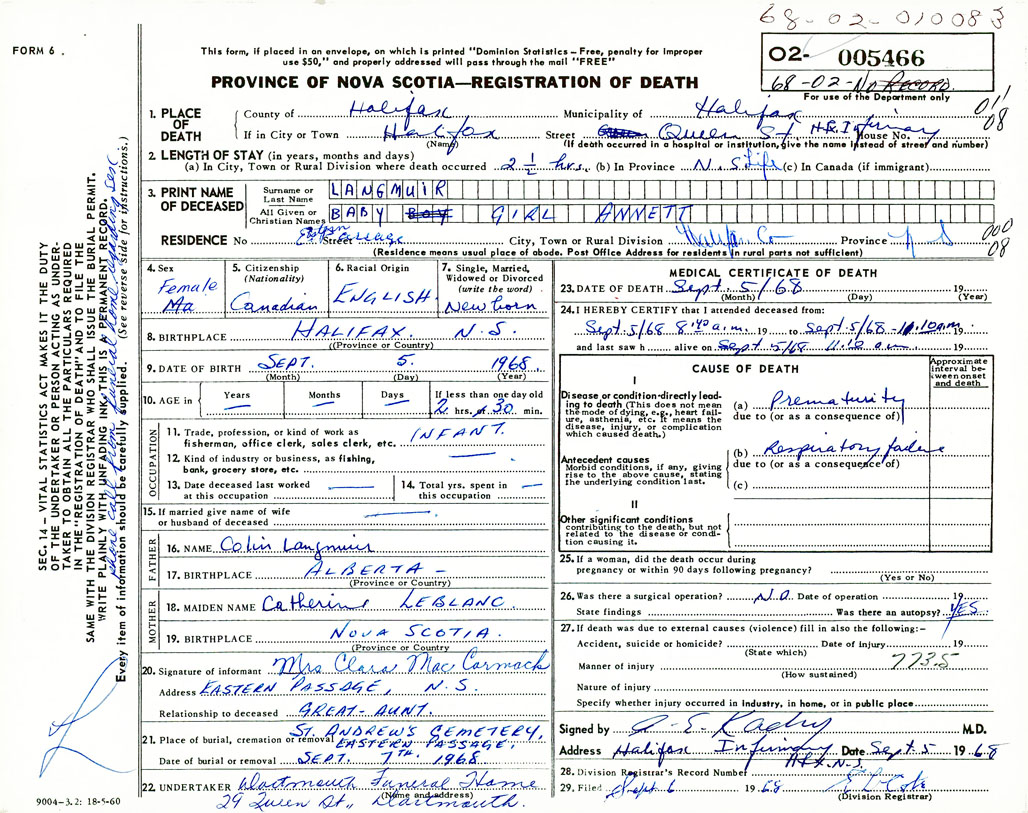 68-02-010083
FORM 6 .
This form, if placed in an envelope, on which is printed "Dominion Statistics – Free, penalty for improper
use $50," and properly addressed will pass through the mail "FREE"
02- 005466
68-02-No RECORD.
For use of the Department only
PROVINCE OF NOVA SCOTIA—REGISTRATION OF DEATH
011
08
1. PLACE OF DEATH
County of Halifax Municipality of Halifax
If in City or Town Halifax Street Queen St H.R. Infirmary House No.
(Name) (If death occurred in a hospital or institution, give the name instead of street and number)
2. LENGTH OF STAY (in years, months and days)
(a) In City, Town or Rural Division where death occurred 2 ½ hrs. (b) In Province N.S Life (c) In Canada (if immigrant)
3. PRINT NAME OF DECEASED
Surname or Last Name LANGMUIR
All Given or Christian Names BABY BOY GIRL ANNETT
RESIDENCE No Street Passage City, Town or Rural Division Halifax Co Province N S
000
08
(Residence means usual place of abode. Post Office Address for residents in rural parts not sufficient)
4. Sex
Female
Ma
5. Citizenship
(Nationality)
Canadian
6. Racial Origin
ENGLISH
7. Single, Married, Widowed or Divorced
(write the word)
Newborn
8. BIRTHPLACE HALIFAX. N.S.
(Province or Country)
9. DATE OF BIRTH SEPT. 5. 1968
(Month) (Day) (Year)
10. AGE in Years Months Days If less than one day old
2 hrs. or 30 min.
OCCUPATION
11. Trade, profession, or kind of work as
fisherman, office clerk, sales clerk, etc. INFANT.
12. Kind of industry or business, as fishing,
bank, grocery store, etc.
13. Date deceased last worked
at this occupation
14. Total yrs. spent in
this occupation
15. If married give name of wife
or husband of deceased
FATHER
16. NAME Colin Langmuir
17. BIRTHPLACE ALBERTA –
(Province or Country)
MOTHER
18. MAIDEN NAME Catherine LEBLANC.
19. BIRTHPLACE NOVA SCOTIA.
(Province or Country)
20. Signature of informant Mrs Clara MacCormack
Address EASTERN PASSAGE, N.S.
Relationship to deceased GREAT-AUNT.
21. Place of burial, cremation or removal ST. ANDREW'S CEMETERY,
EASTERN PASSAGE,
Date of burial or removal SEPT. 7th, 1968
22. UNDERTAKER Dartmouth Funeral Home
(Name and address)
29 Queen St., Dartmouth.
MEDICAL CERTIFICATE OF DEATH
23. DATE OF DEATH Sept. 5/68
(Month) (Day) (Year)
24. I HEREBY CERTIFY that I attended deceased from:
Sept. 5/68 8:40 a.m. 19 to Sept. 5/68 - 11.10 a.m. 19
and last saw h alive on Sept 5/68 11.10 a.m. 19
CAUSE OF DEATH
Approximate interval between onset and death
I
Disease or condition directly leading to death (This does not mean
the mode of dying, e.g., heart failure, asthenia, etc. It means the
disease, injury, or complication
which caused death.)
(a) Prematurity
due to (or as a consequence of)
Antecedent causes
Morbid conditions, if any, giving
rise to the above cause, stating
the underlying condition last.
(b) Respiratory failure
due to (or as a consequence of)
(c)
II
Other significant conditions
contributing to the death, but not
related to the disease or condition causing it.
25. If a woman, did the death occur during
pregnancy or within 90 days following pregnancy?
(Yes or No)
26. Was there a surgical operation? No. Date of operation 19
State findings Was there an autopsy? YES
27. If death was due to external causes (violence) fill in also the following:–
Accident, suicide or homicide? Date of injury 19
(State which)
773.5
Manner of injury
(How sustained)
Nature of injury
Specify whether injury occurred in industry, in home, or in public place
Signed by M.D.
Address Halifax Infirmary Date Sept. 5 1968
Hfx. N.S.
28. Division Registrar's Record Number
29. Filed Sept 6 1968
(Division Registrar)
SEC. 14 – VITAL STATISTICS ACT MAKES IT THE DUTY
OF THE UNDERTAKER OR PERSON ACTING AS UNDER-
TAKER TO OBTAIN ALL THE PARTICULARS REQUIRED
IN THE "REGISTRATION OF DEATH" AND TO FILE THE
SAME WITH THE DIVISION REGISTRAR WHO SHALL ISSUE THE BURIAL PERMIT.
WRITE PLAINLY WITH UNFADING INK. THIS IS A PERMANENT RECORD.
phone call from funeral home regarding sex
Every item of information should be carefully supplied. (See reverse side for instructions.)
9004-3.2: 18-5-60